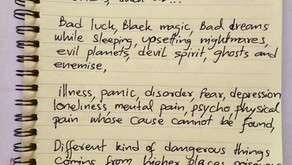 Bad luck, Black magic, Bad dreams
while sleeping, upsetting nightmares,
evil planets, devil spirit, ghosts and
enemise,
illness, panic, disorder, fear, depression
loneliness mental pain, psycho physical
pain whose cause cannot be found,
Different kind of dangerous things
coming from higher places